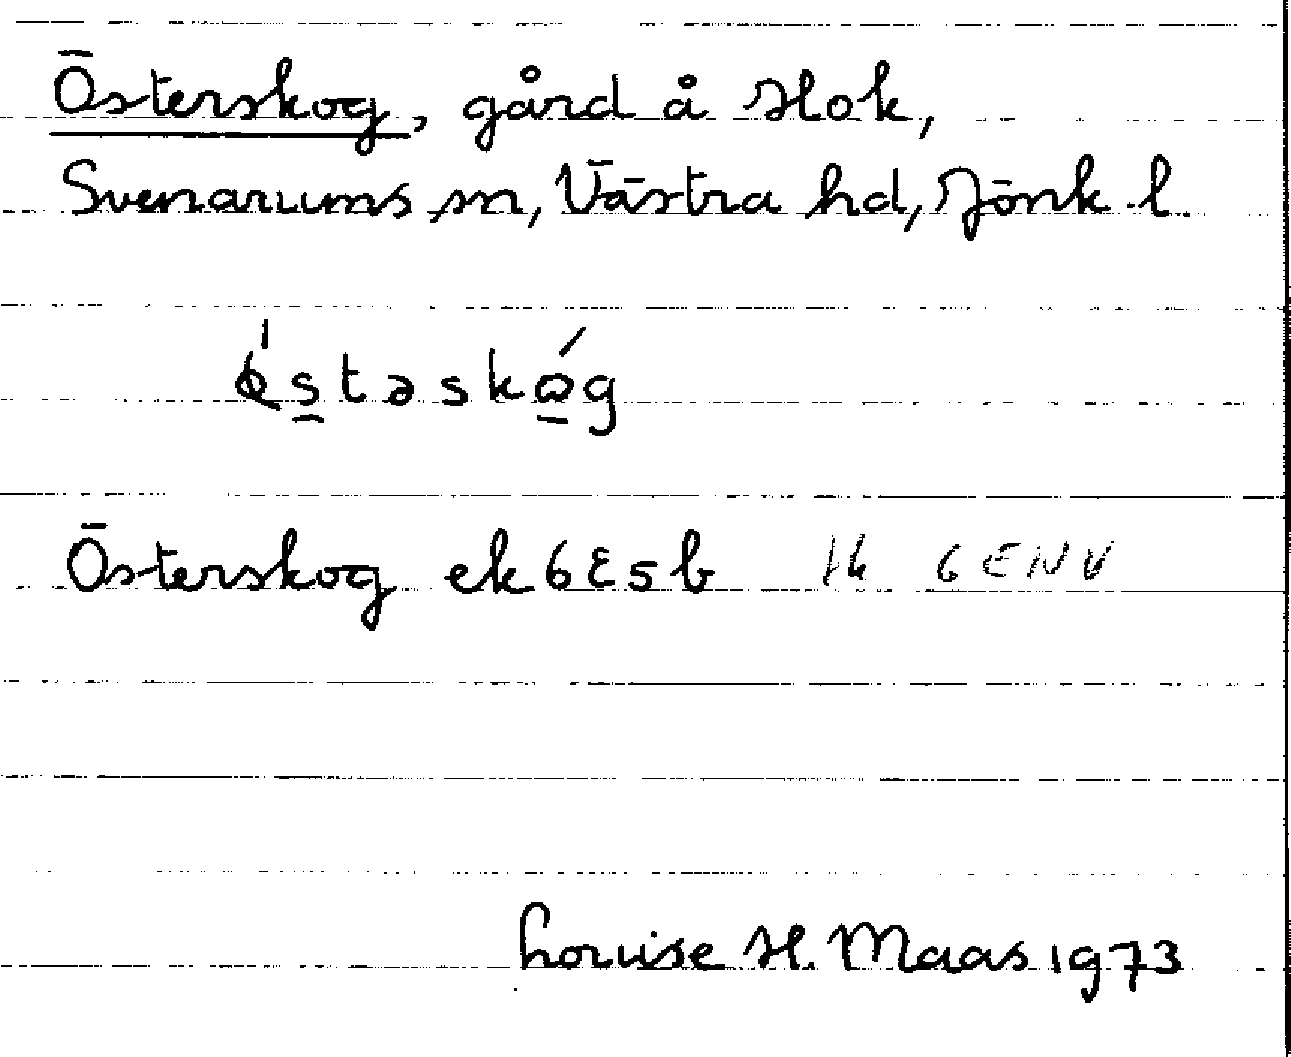 Österskog, gård å Hok,
Svenarums sn, Västra hd, Jönk. l.
Österskog ek 6E5b 6ENV
Louise H. Maas 1973